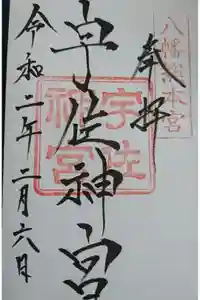 八幡総本宮
奉拝
宇佐神宮
宇佐神宮
令和二年二月六日